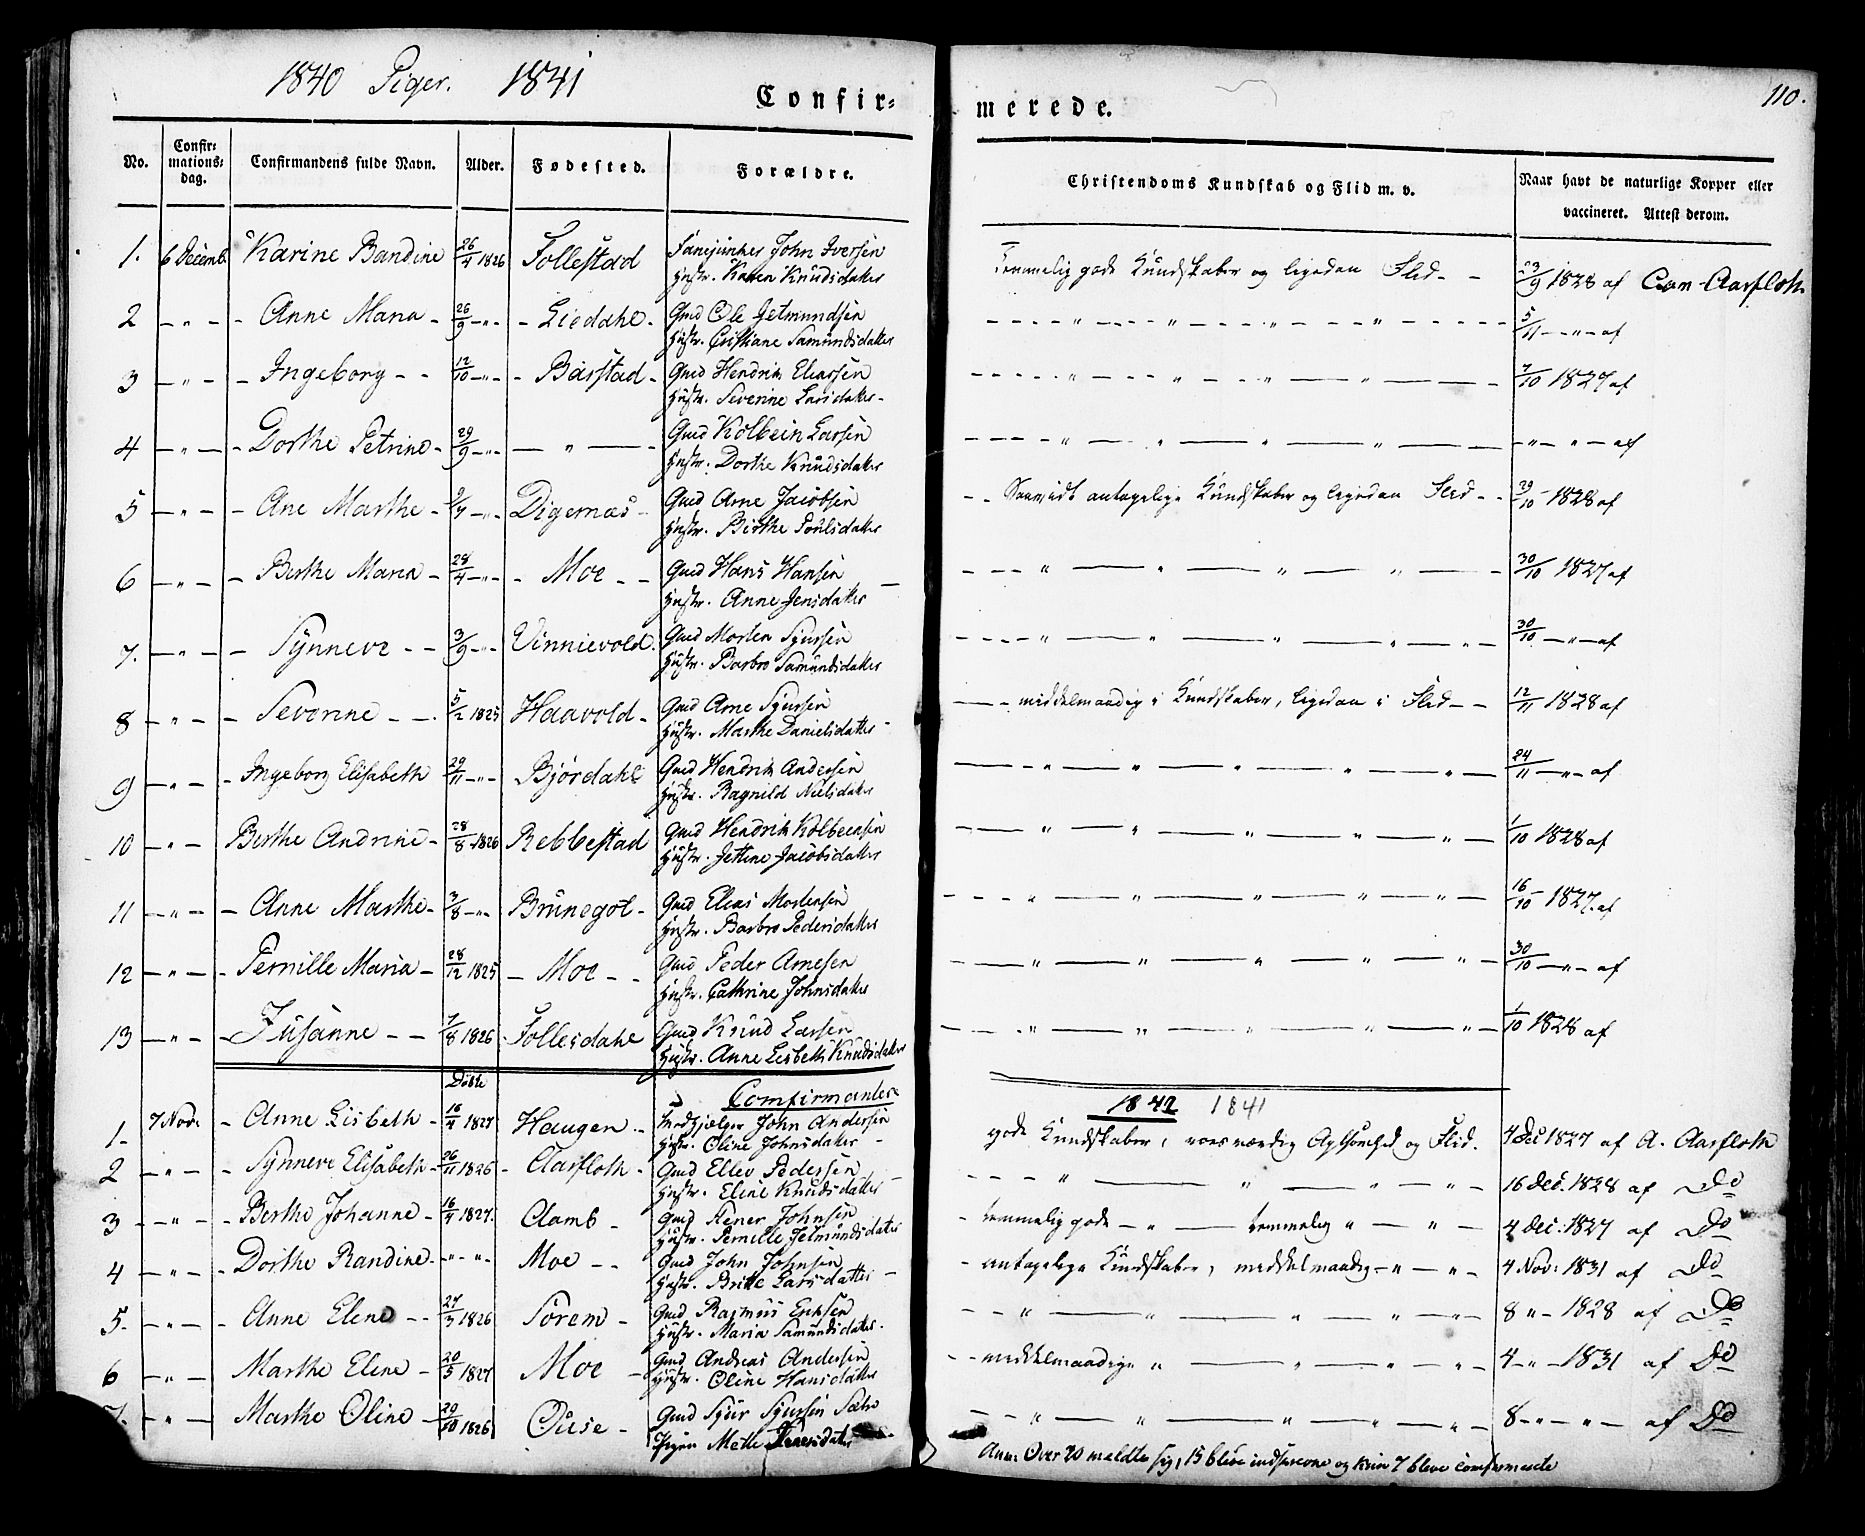 1840 Piger. 1841
Confir=
merede.
110.
No.
Confir=
mations=
dag.
Confirmandens fulde Navn.
Alder.
Fødested.
Forældre.
Christendoms Kundskab og Flid m. v.
Naar havt de naturlige Kopper eller
vaccineret. Attest derom.
1. 6 Decemb. Karine Bandine 26/4 1826 Follestad Fanejunker John Iversen
Hustr. Karen Knudsdatter
Temmelig gode Kundskaber og ligedan Flid - - 23/9 1828 af Aarfloth
2 - " - - Anne Maria - 26/9 - " - - Liedahl - Gmd Ole Jetmundsen
Hustr. Cristiane Samundsdatter
5/11 - " - af
3 - " - - Ingeborg - - 12/10 - " - - Barstad - Gmd Hendrik Eliassen
Hustr. Severine Larsdatter -
7/10 1827 af
4 - " - - Dorthe Petrine - 29/9 - " - - " - Gmd Kolbein Larsen
Hustr. Dorthe Knudsdatter
- " - " - af
5 - " - - Ane Marthe - /4 - " - Digernæs - Gmd Arne Jacobsen
Hustr. Birthe Poulsdatter
- - Saavidt antagelige Kundskaber og ligedan Flid - - 29/10 - 1828 af
6 - " - - Berthe Maria - 28/4 - " - - Moe - - Gmd Hans Hansen
Hustr. Anne Jensdatter
30/10 1827 af
7. - " - - Synneve - - 3/9 - " - Vinnievold. Gmd Morten Syursen
Hustr. Barbro Samundsdatter
30/10 - " - af
8 - " - - Severine - - . 5/2 1825 Haavold - Gmd Arne Syursen
Hustr. Marthe Danielsdatter
- - middelmaadig i Kundskaber, ligedan i Flid - - 12/11 1828 af
9 - " - - Ingeborg Elisabeth 29/11 - " - Bjørdahl Gmd Hendrik Andersen
Hustr. Ragnild Nielsdatter
24/11 - " - af
10 - " - Berthe Andrine - 28/8 1826 Rebbestad Gmd Hendrik Kolbeensen
Hustr. Jettine Jacobsdatter
1/10 1828 af
11 - " - - Anne Marthe - 3/8 - " - Brunegot - Gmd Elias Mortensen
Hustr. Barbro Pedersdatter
16/10 - 1827. af
12 - " - - Pernille Maria - 28/12 1825 - Moe - - Gmd Peder Arnesen
Hustr. Cathrine Johnsdatter
30/10 - " - af
13 - " - - Susanne - - 7/8 1826 Follesdahl Gmd Knud Larsen
Hustr. Anne Lisbeth Knudsdatter
1/10 1828 af
Døbte
Comfirmander
1842 1841
1. 7 Nov: - Anne Lisbeth - 16/4 1827 Haugen - John Andersen
Hustr. Oline Johnsdatter -
gode Kundskaber, roesværdig Opførsel og Flid. 4 Dec 1827 af A. Aarfloth
2 - " - - Synneve Elisabeth - 26/11 1826 - Aarfloth - Gmd Ellev Pedersen
Hustr. Eline Knudsdatter -
16 Dec. 1828 af Do
3 - " - - Berthe Johanne - 16/4 1827. Aamb - Gmd Johnsen
Hustr. Pernille Jetmundsdatter
- temmelig gode - " - temmelig " - " - 4 Dec: 1827 af Do
4 - " - - Dorthe Randine - " - " - Moe - - Gmd John Johnsen
Hustr. Britte Larsdatter -
- antagelige Kundskaber, middelmaadig - " - " - 4 Nov: 1831 af Do
5. - " - - Anne Elene - - 27/3 1826 Sørem - Gmd Rasmus Eriksen
Hustr. Maria Samundsdatter.
8 " - 1828 af Do
6 - " - Marthe Elene - 20/5 1827 Moe - Gmd Andreas Andersen
Hustr. Oline Hansdatter
- - middelmaadige " - " - " - 4 - " - 1831 af Do
7. - " - Marthe Oline - 29/10 1826 Ouse - Gmd Syur Syursen Sætre
Pigen Mette
8 - " - " - af Do
Anm: Over 20 meldte sig, 15 bleve indskrevne og kun 7 bleve comfirmerede